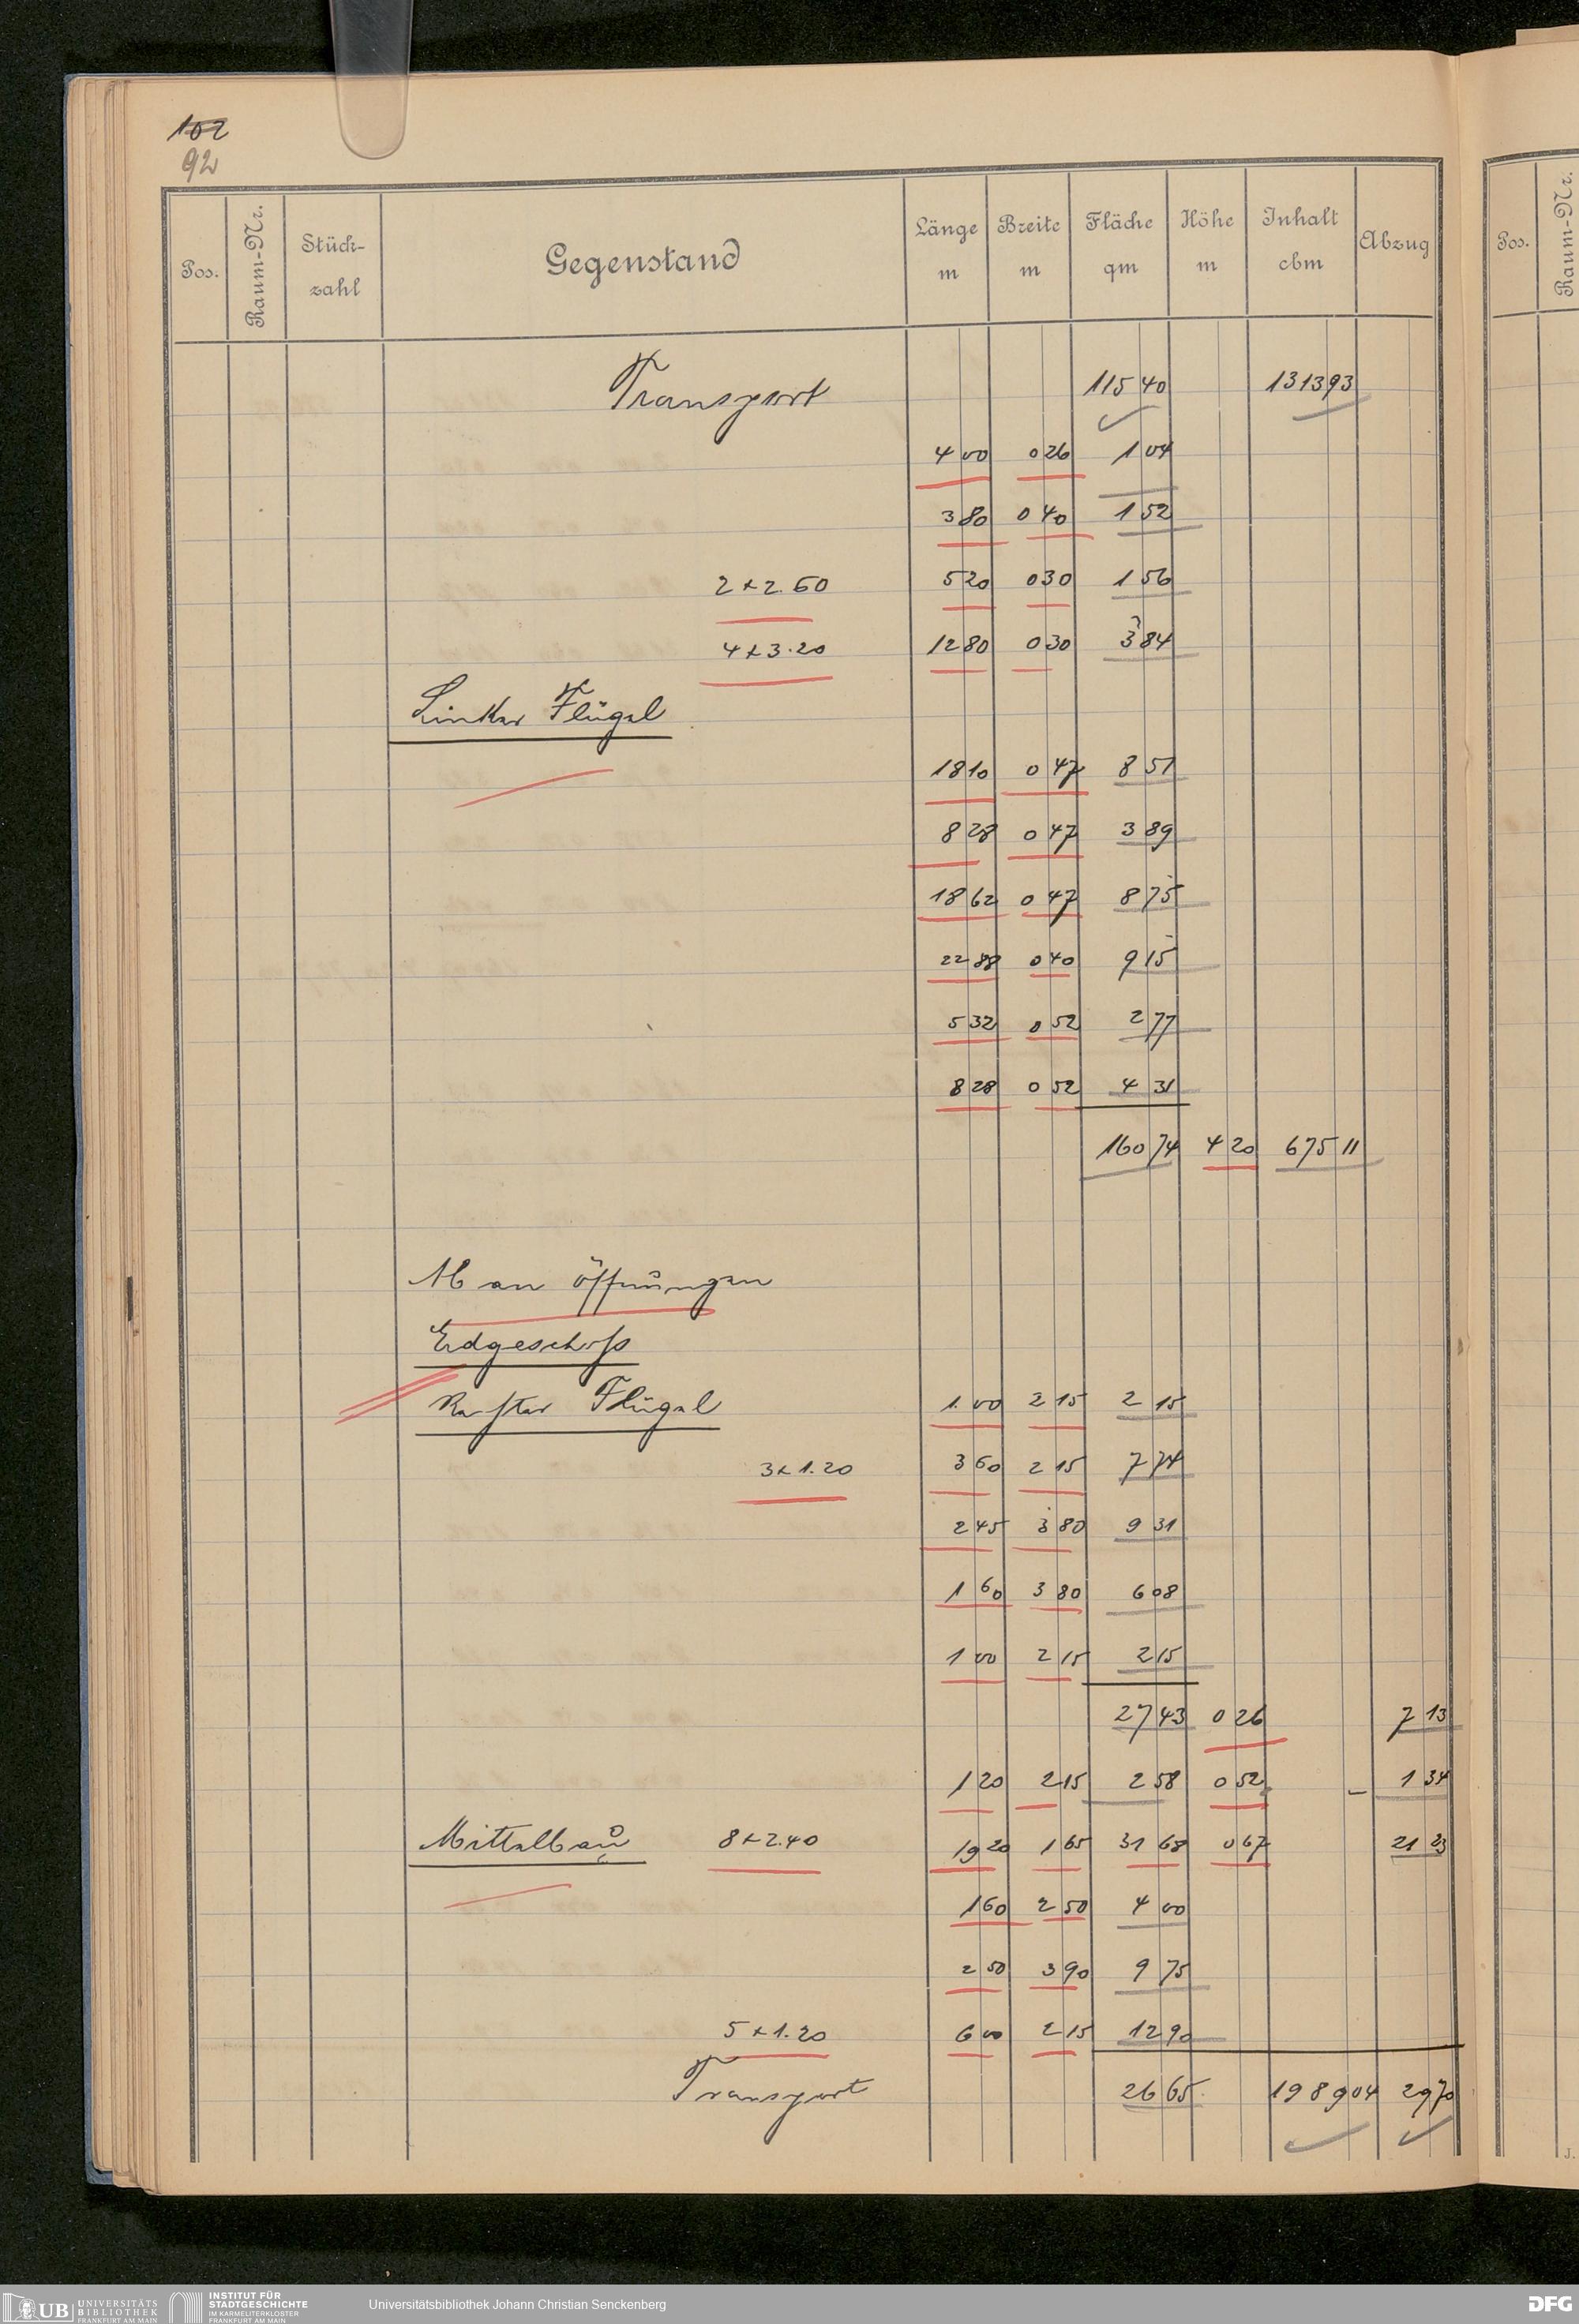 102
92
Pos. Raum-Nr. Stück-zahl Gegenstand Länge m Breite m Fläche qm Höhe m Inhalt cbm Abzug
Pos. Raum-Nr.
Transport 115 40 1313 93
4 00 0 26 1 04
3 80 0 40 1 52
2 x 2.60 5 20 0 30 1 56
4 x 3.20 12 80 0 30 3 84
Linker Flügel
18 10 0 47 8 51
8 28 0 47 3 89
18 62 0 47 8 75
22 88 0 40 9 15
5 32 0 52 2 77
8 28 0 52 4 31
160 74 4 20 675 11
Ab an Öffnungen
Erdgeschoß
Rechter Flügel 1.00 2 15 2 15
3 x 1.20 3 60 2 15 7 74
2 45 3 80 9 31
1 60 3 80 6 08
1 00 2 15 2 15
27 43 0 26 7 13
1 20 2 15 2 58 0 52 – 1 34
Mittelbau 8 x 2.40 19 20 1 65 31 68 0 67 21 23
1 60 2 50 4 00
2 50 3 90 9 75
5 x 1.20 6 00 2 15 12 90
Transport 26 65 1989 04 29 70
J.
UB UNIVERSITÄTS BIBLIOTHEK FRANKFURT AM MAIN
INSTITUT FÜR STADTGESCHICHTE IM KARMELITERKLOSTER FRANKFURT AM MAIN
Universitätsbibliothek Johann Christian Senckenberg
DFG